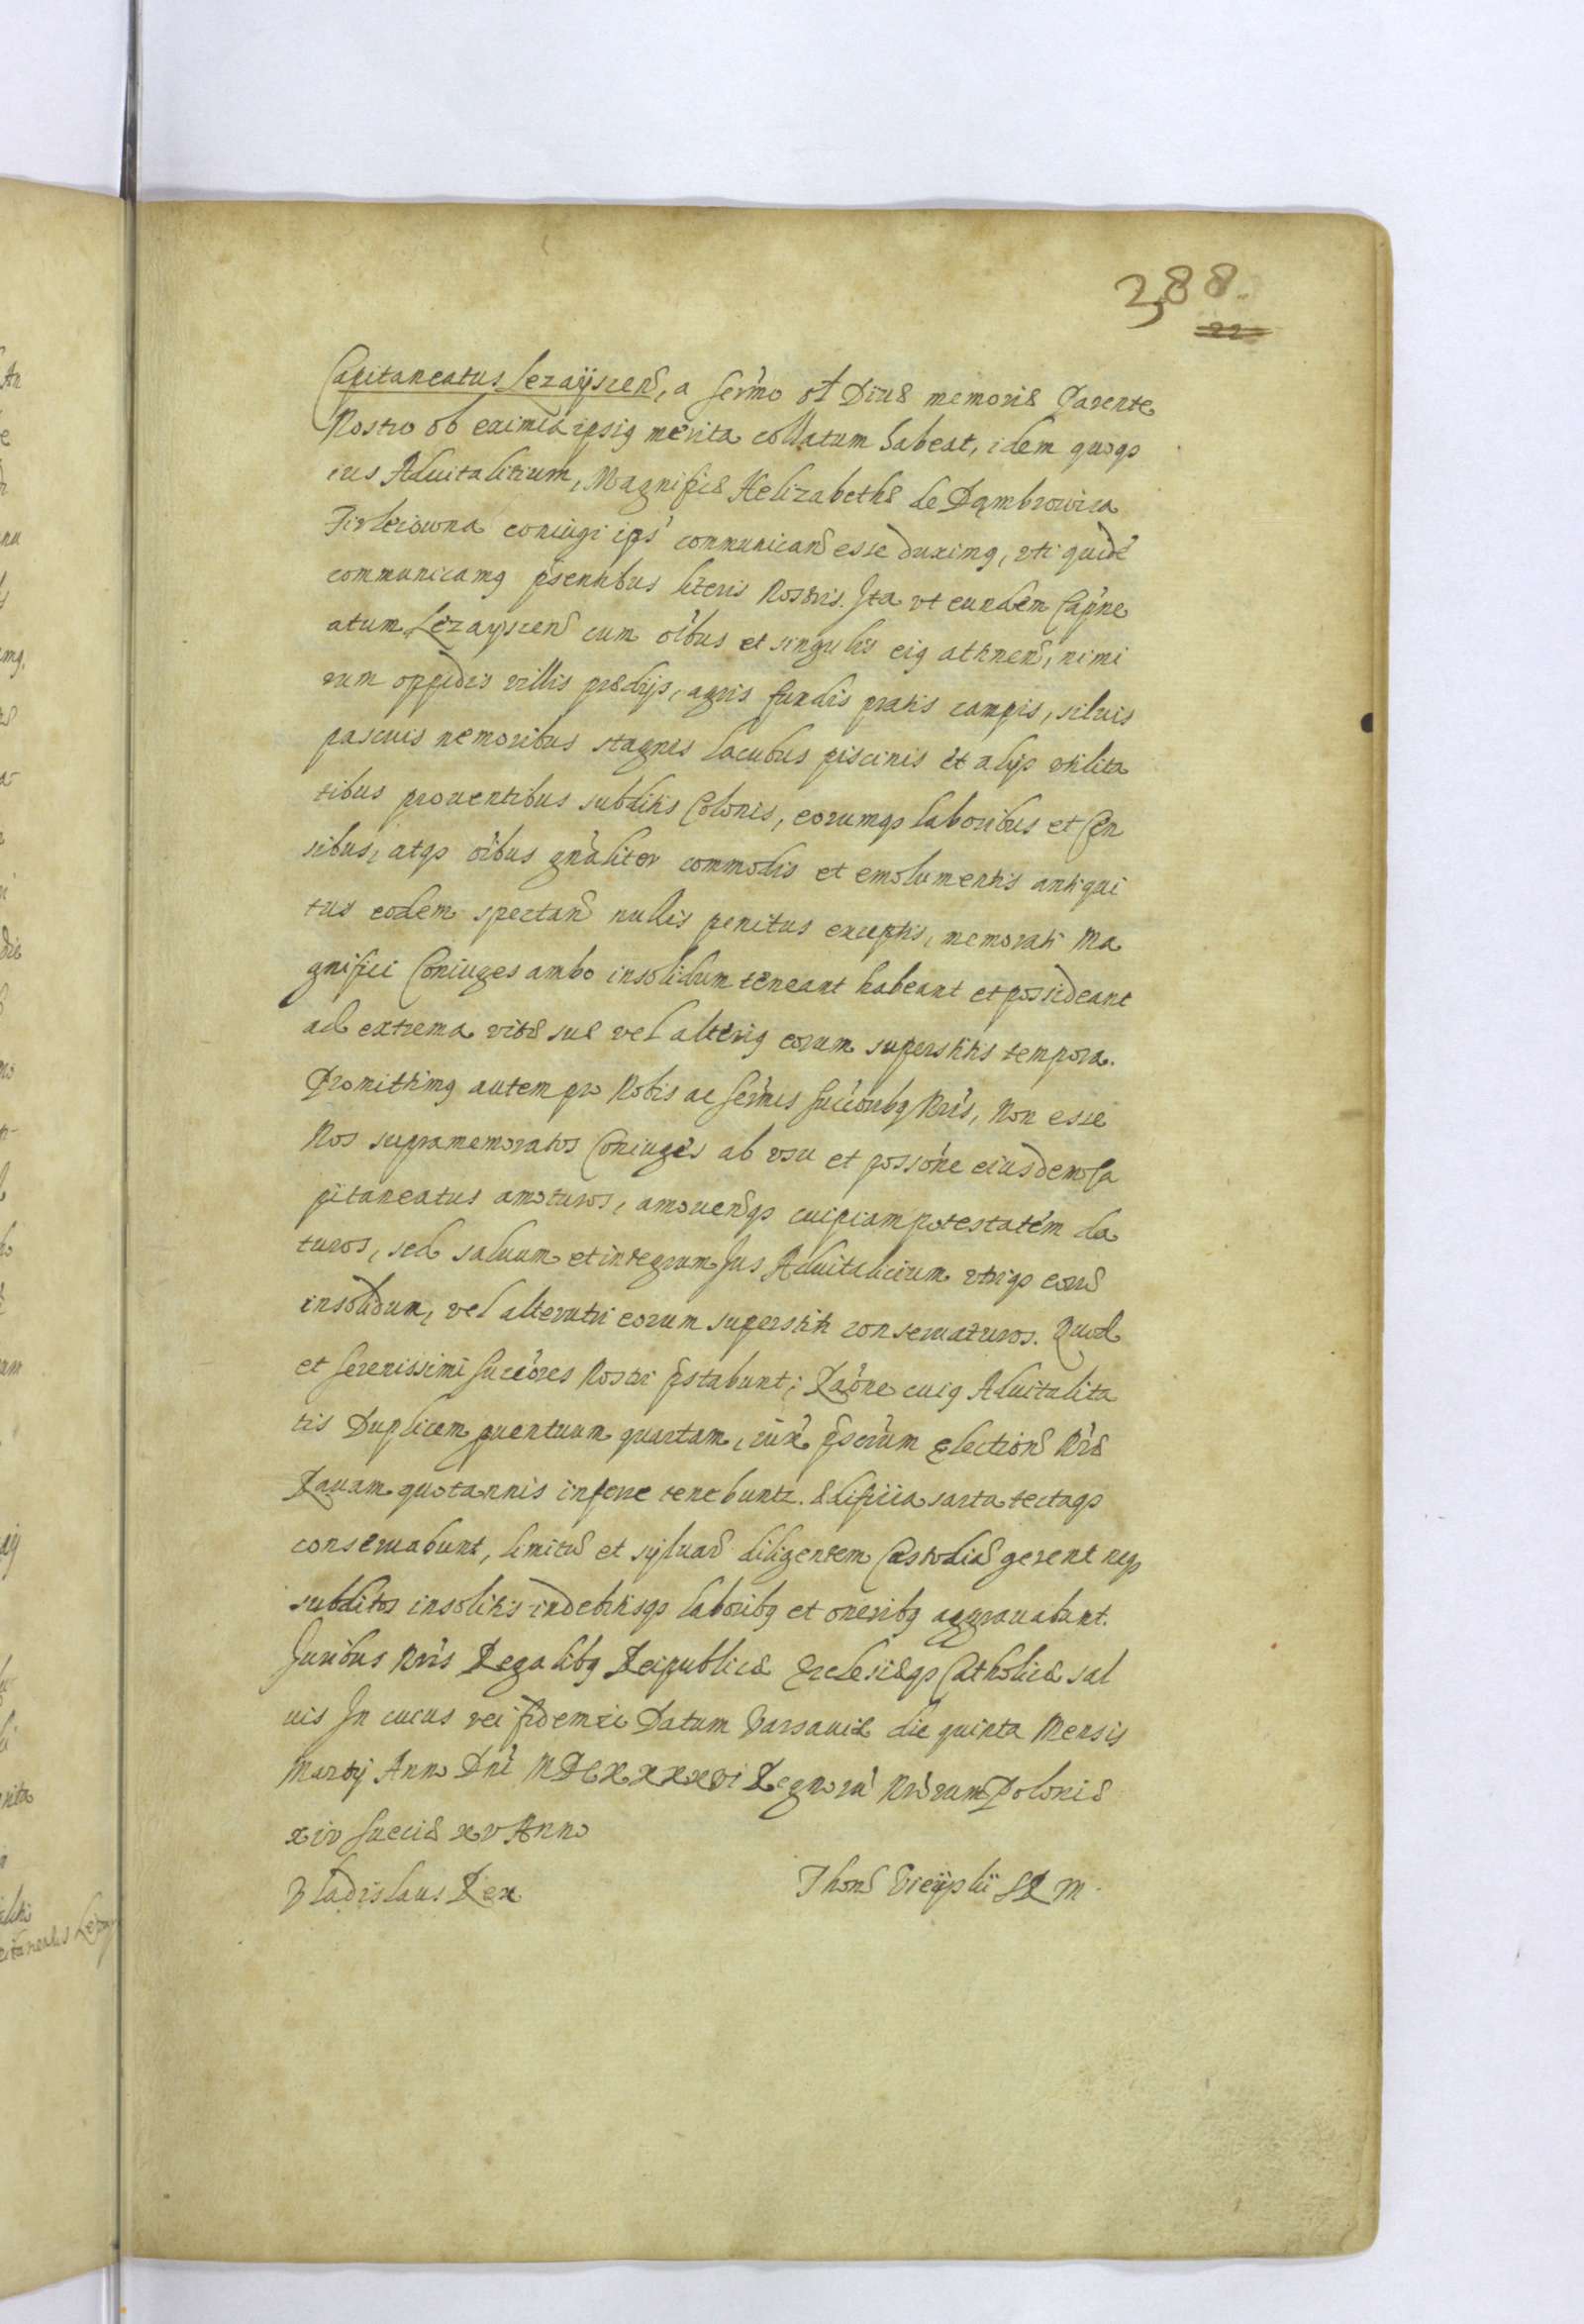 388.
22
Capitaneatus Lezaÿscens, a Sermo ol Diuæ memoriæ Parente
Nostro ob eximia ipsiq merita collatum habeat, idem quoqз
ius Aduitalitium, Magnificæ Helizabethæ de Dąmbrowica
Firleiowna coniugi ips' communicand esse duximq, vti quidē
communicamq psentibus literis Nostris. Ita vt eundem Capne
atum Lezayscens cum oibus et singulis eiq attinen, nimi
rum oppidis villis prædijs, agris fundis pratis campis, siluis
pascuis nemoribus stagnis lacubus piscinis et alijs vtilita
tibus prouentibus subditis Colonis, eorumqз laboribus et Cen
sibus, atqз oibus gnaliter commodis et emolumentis antiqui
tus eodem spectan nullis penitus exceptis, memorati Ma
gnifici Coniuges ambo insolidum teneant habeant et possideant
ad extrema vitæ suæ vel alteriq eorum superstitis tempora.
Promittimq autem pro Nobis ac Sermis Succoribq Nris, Non esse
Nos supramemoratos Coniuges ab vsu et possone eiusdem Ca
pitaneatus amoturos, amouendqз cuipiam potestatem da
turos, sed saluum et integrum Jus Aduitalicium vtriqз eorū
insolidum, vel alterutri eorum superstiti conseruaturos. Quod
et Serenissimi Succores Nostri pstabunt; Raone cuiq Aduitalita
tis Duplicem puentuum quartam, iux pscrum Electionis Nræ
Rauam quotannis inferre tenebuntr. Ædificia sarta tectaqз
conseruabunt, limitū et syluarū diligentem Custodiā gerent neqз
subditos insolitis indebitisqз laboribq et oneribq aggrauabunt.
Juribus Nris Regalibq Reipublicæ Ecclesiæqз Catholicæ sal
uis In cuius rei fidem &c Datum Varsauiæ die quinta Mensis
Martij Anno Dni MDCXXXXVI Regnorū Nrorum Poloniæ
xiv Sueciæ xv Anno
Vladislaus Rex
Thoms Vieÿskÿ SRM.